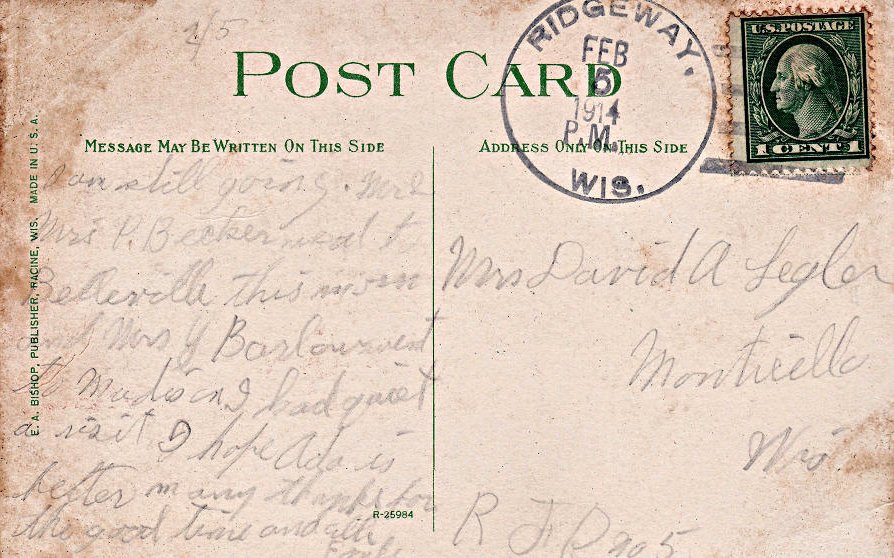 2/5
POST CARD
RIDGEWAY.
FEB
5
1914
P.M.
WIS.
U.S. POSTAGE
1 CENT 1
MESSAGE MAY BE WRITTEN ON THIS SIDE
ADDRESS ONLY ON THIS SIDE
E. A. BISHOP, PUBLISHER, RACINE, WIS. MADE IN U. S. A.
I am still going. Mr &
Mrs P. Becker went to
Belleville this morn
and Mrs J Barlow went
to Madison I had quiet
a visit I hope Ada is
better many thanks for
the good time and
R-25984
Mrs David A Legler
Monticello
Wis.
R F D no 5